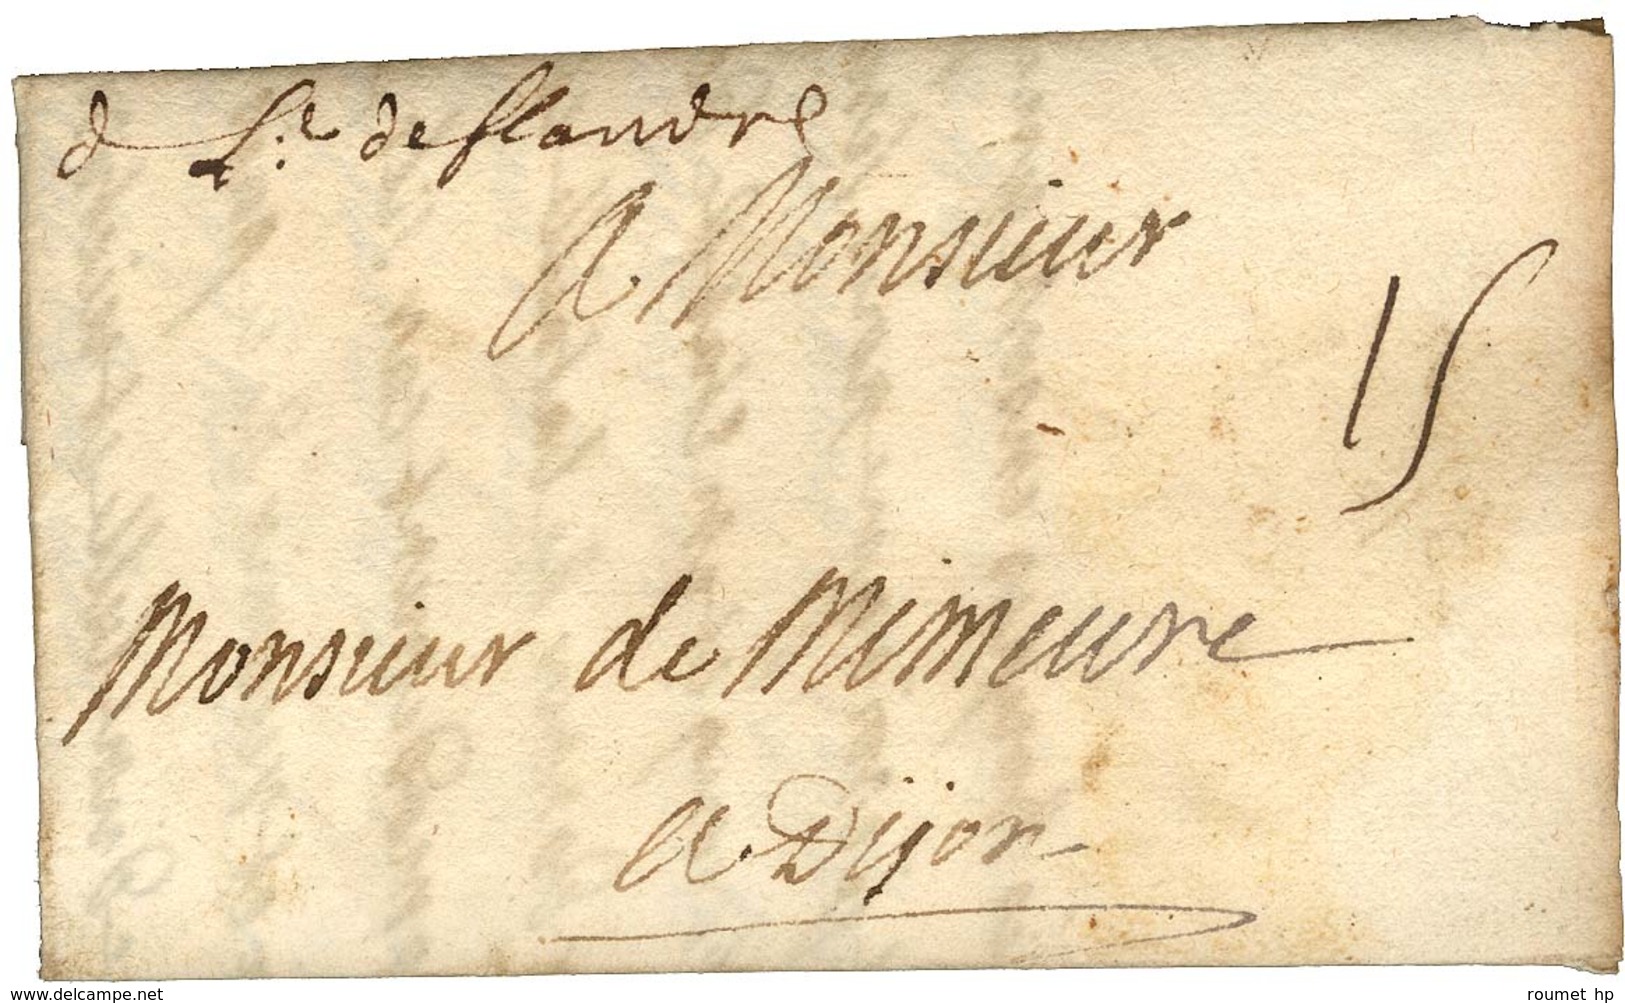 d L:e de flandre
A Monsieur
15
Monsieur de Mimeure
A Dijon
www.delcampe.net
roumet hp